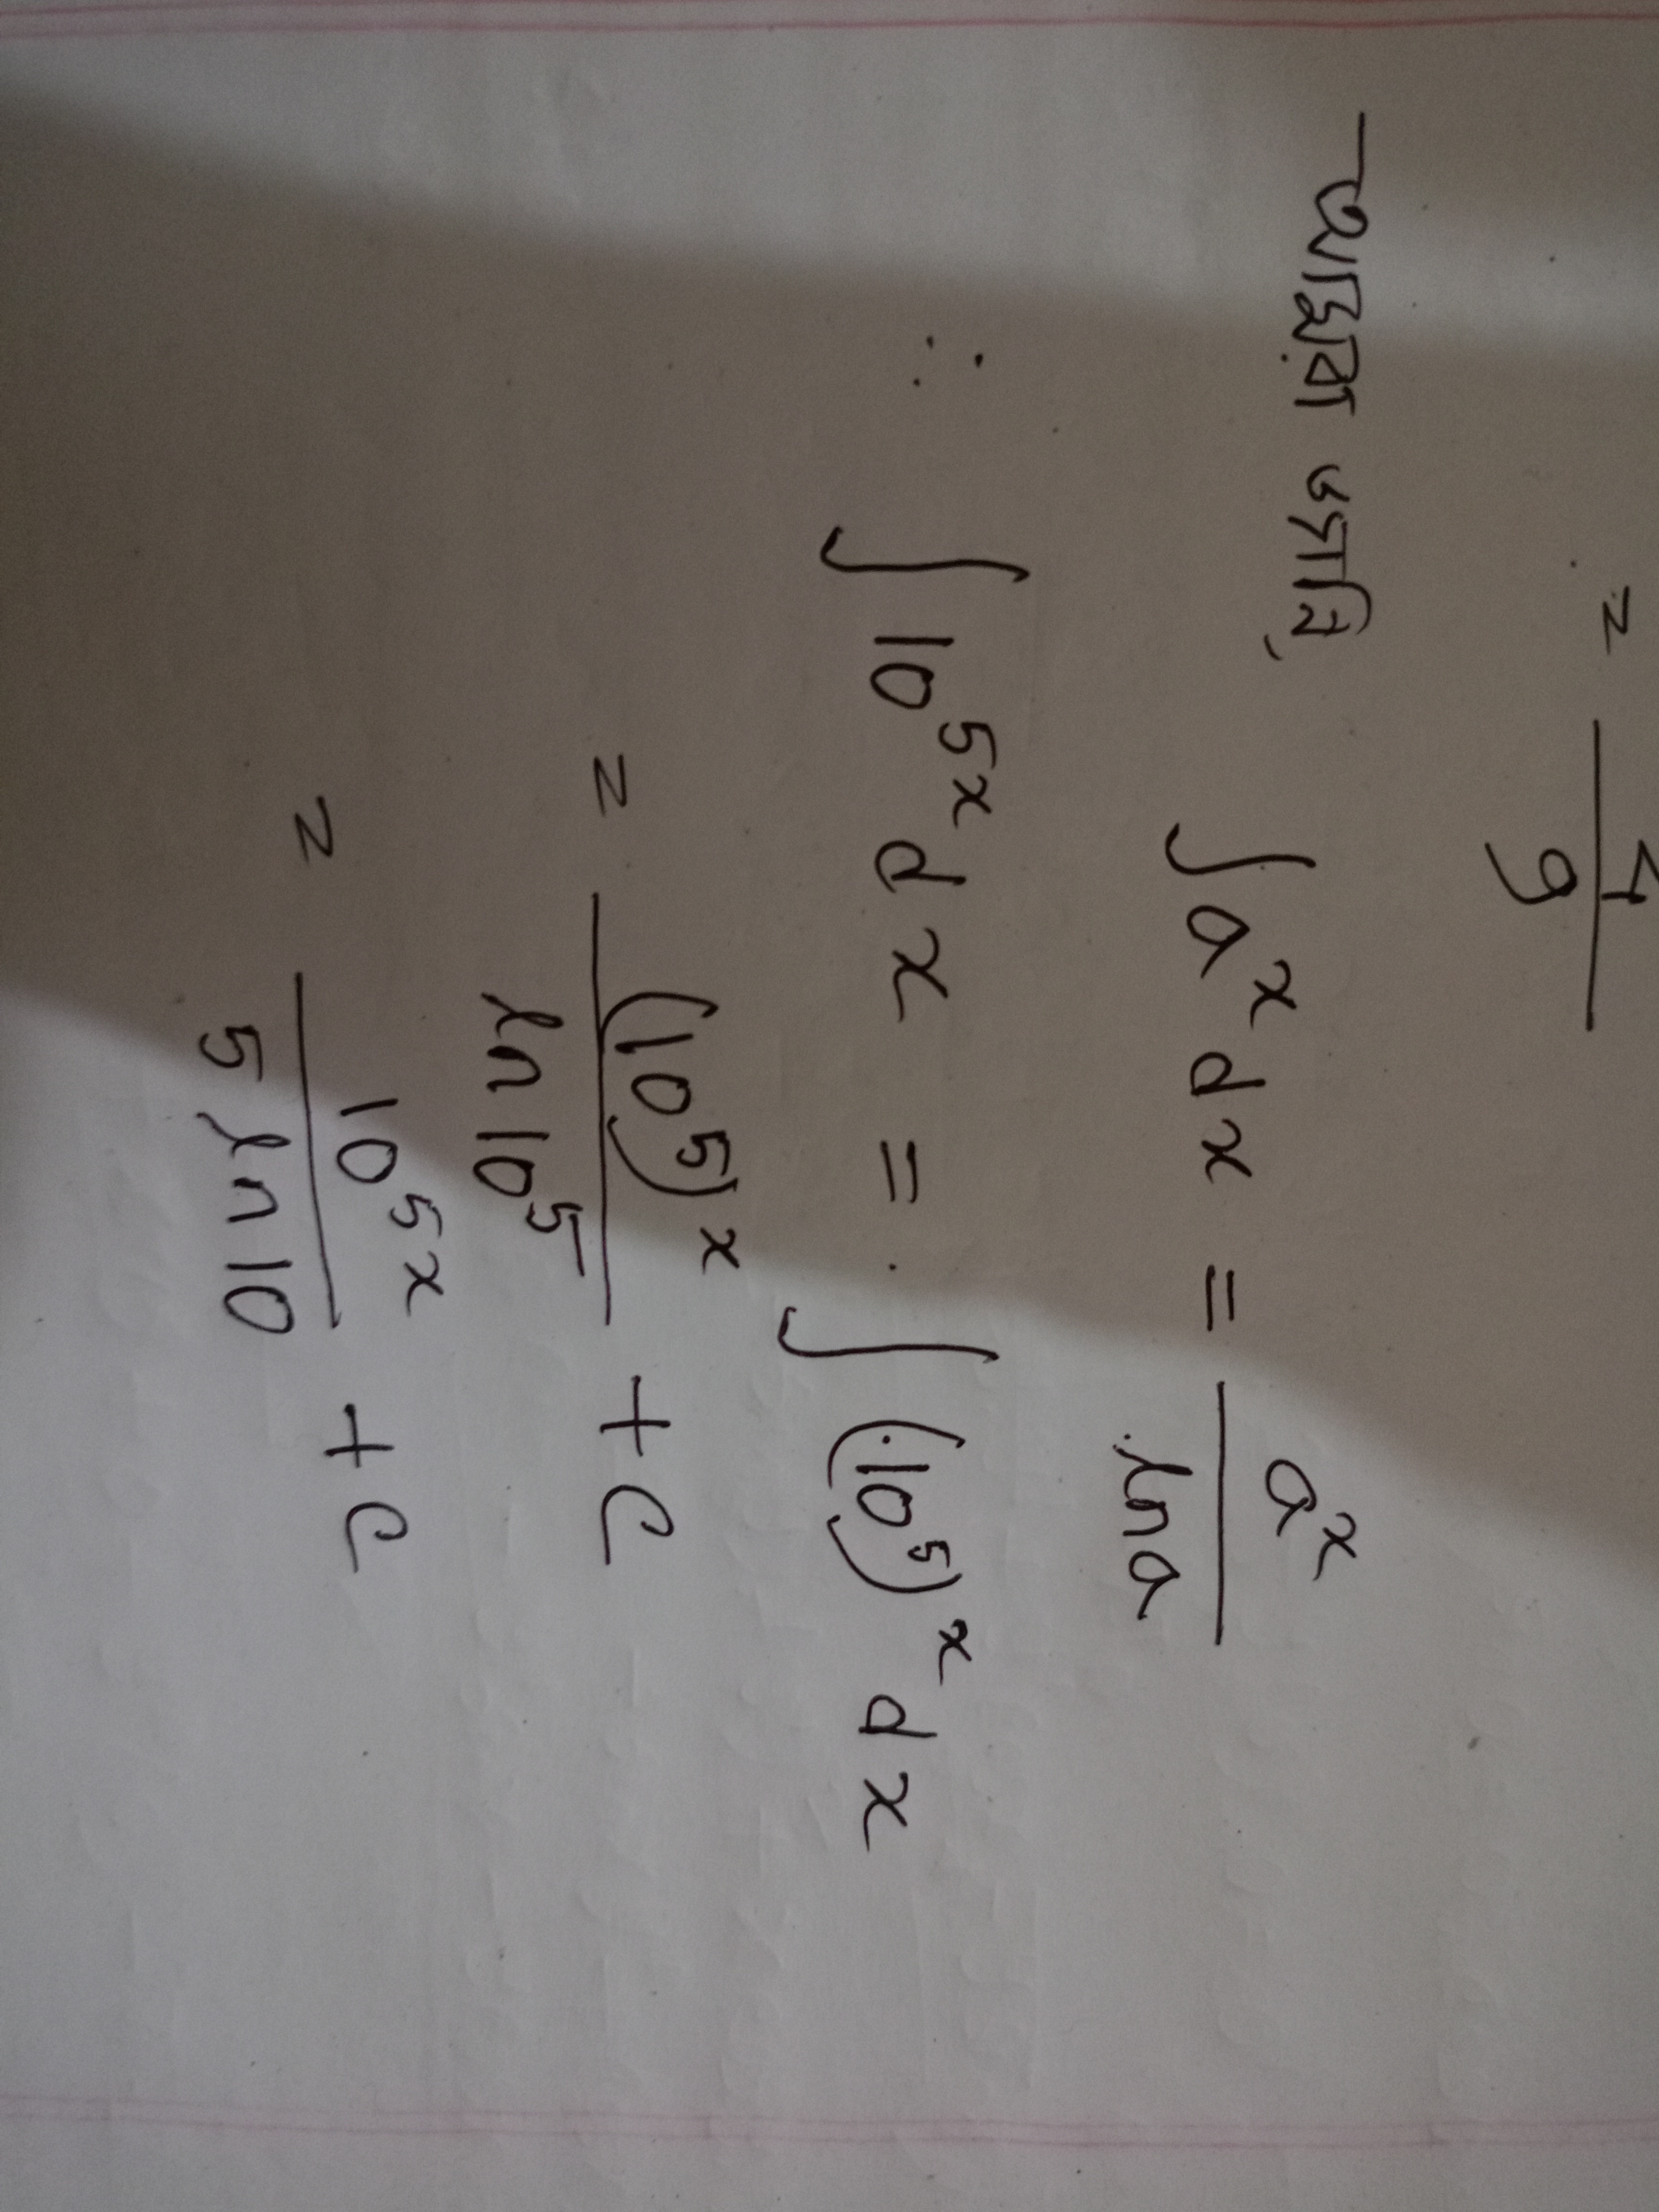 =
9
আমরা জানি,
∫a^x dx = a^x / ln a
∴ ∫10^{5x} dx = ∫(10^5)^x dx
= (10^5)^x / ln 10^5 + c
= 10^{5x} / 5 ln 10 + c